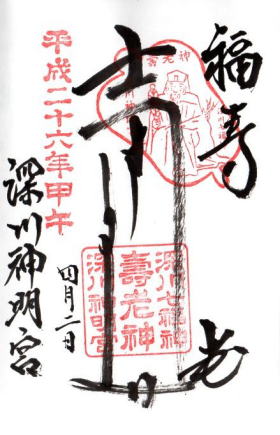 福寿
老
平成二十六年甲午
四月二日
深川神明宮
深川七福神
壽老神
深川神明宮